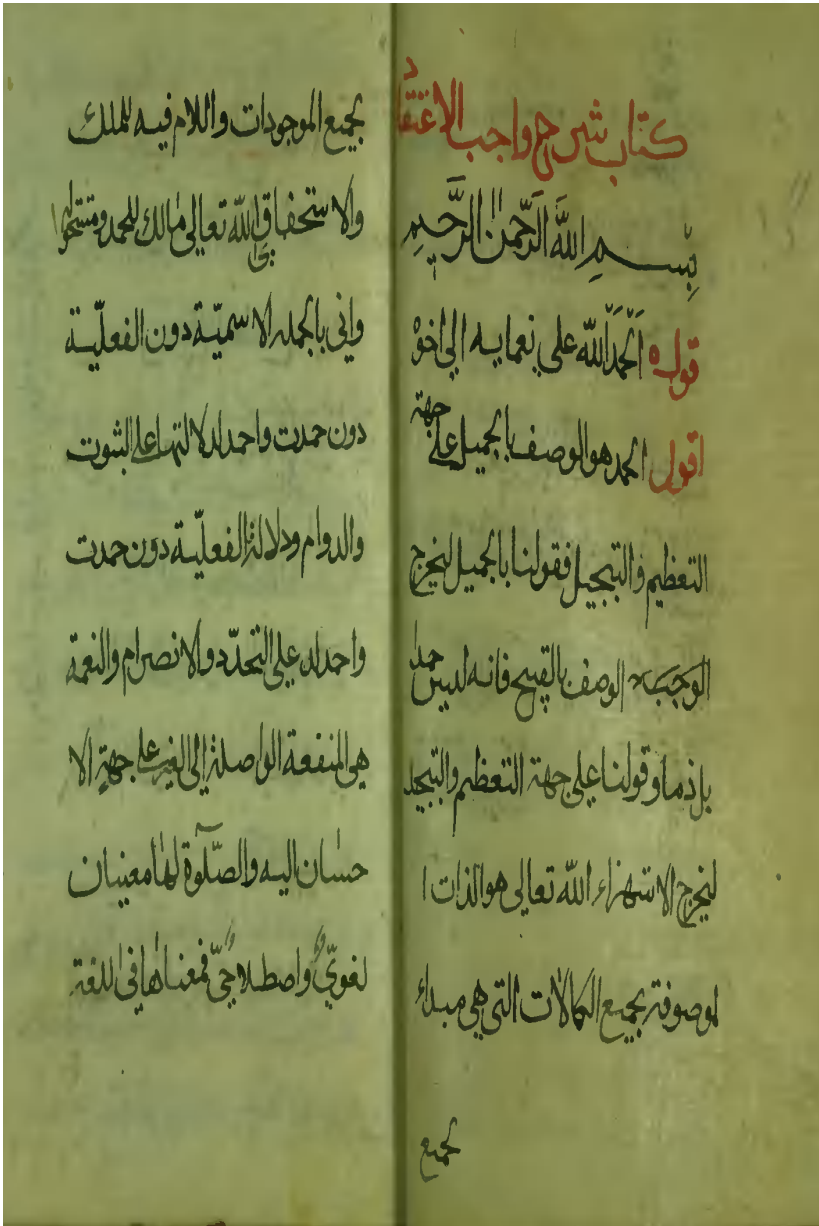 كتاب شرح واجب الاعتقاد
بِسْمِ اللهِ الرَّحْمنِ الرَّحيمِ
قوله اَلحمدُ لله على نعمايه الى اخره
اقول الحمد هو الوصف بالجميل على جهة
التعظيم والتبجيل فقولنا بالجميل ليخرج
الوصف بالقبيح فانه ليس حمدا
بل ذما وقولنا على جهة التعظيم والتبجيل
ليخرج الاستهزاء الله تعالى هو الذات ا
لموصوفة بجميع الكمالات التي هي مبداء
لجميع
لجميع الموجودات واللام فيه للملك
والاستحقاق اي الله تعالى مالك للحمد ومستحق له
واتى بالجمله الاسميّة دون الفعليّة
دون حمدت واحمد لدلالتها على الثبوت
والدوام ودلالة الفعليّة دون حمدت
واحمد على التجدّد والانصرام والنعمة
هي المنفعة الواصلة الى الغير على جهة الا
حسان اليه والصّلوة لها معنيان
لغويّ واصطلاحيّ فمعناها في اللغة